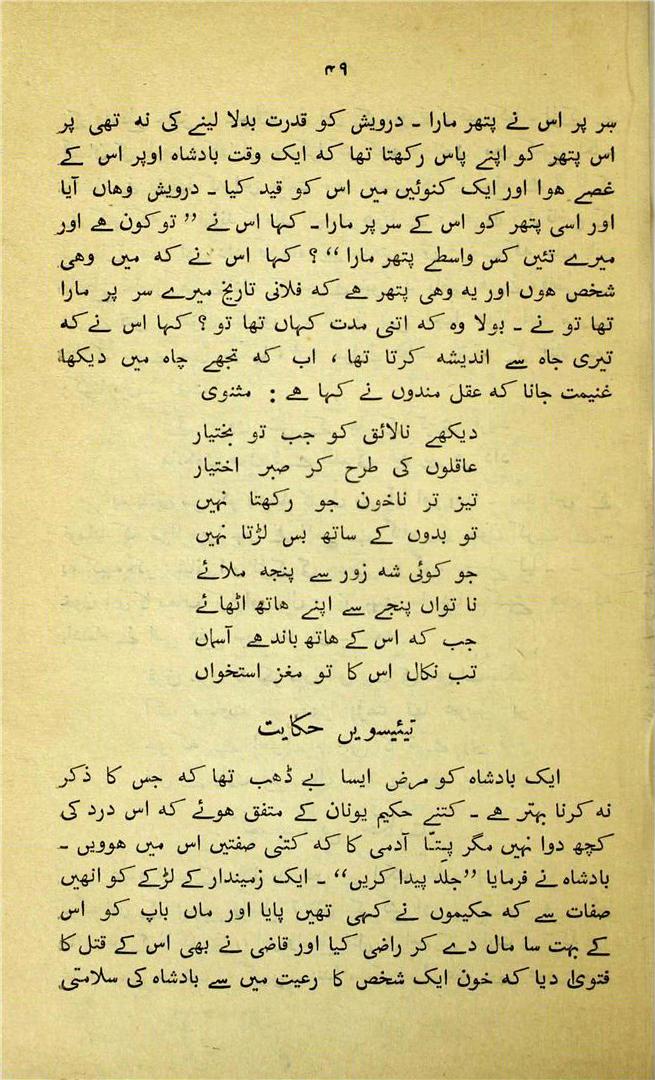 ۴۹
سر پر اس نے پتھر مارا ـ درویش کو قدرت بدلا لینے کی نہ تھی پر
اس پتھر کو اپنے پاس رکھتا تھا کہ ایک وقت بادشاہ اوپر اس کے
غصے ہوا اور ایک کنوئیں میں اس کو قید کیا ـ درویش وہاں آیا
اور اسی پتھر کو اس کے سر پر مارا ـ کہا اس نے ’’ تو کون ہے اور
میرے تئیں کس واسطے پتھر مارا ‘‘ ؟ کہا اس نے کہ میں وہی
شخص ہوں اور یہ وہی پتھر ہے کہ فلانی تاریخ میرے سر پر مارا
تھا تو نے ـ بولا وہ کہ اتنی مدت کہاں تھا تو ؟ کہا اس نے کہ
تیری جاہ سے اندیشہ کرتا تھا ، اب کہ تجھے چاہ میں دیکھا
غنیمت جانا کہ عقل مندوں نے کہا ہے : مثنوی
دیکھے نالائق کو جب تو بختیار
عاقلوں کی طرح کر صبر اختیار
تیز تر ناخون جو رکھتا نہیں
تو بدوں کے ساتھ بس لڑتا نہیں
جو کوئی شہ زور سے پنجہ ملائے
نا تواں پنجے سے اپنے ہاتھ اٹھائے
جب کہ اس کے ہاتھ باندھے آسماں
تب نکال اس کا تو مغز استخواں
تیئیسویں حکایت
ایک بادشاہ کو مرض ایسا بے ڈھب تھا کہ جس کا ذکر
نہ کرنا بہتر ہے ـ کتنے حکیم یونان کے متفق ہوئے کہ اس درد کی
کچھ دوا نہیں مگر پِتّا آدمی کا کہ کتنی صفتیں اس میں ہوویں ـ
بادشاہ نے فرمایا ’’جلد پیدا کریں‘‘ ـ ایک زمیندار کے لڑکے کو انھیں
صفات سے کہ حکیموں نے کہی تھیں پایا اور ماں باپ کو اس
کے بہت سا مال دے کر راضی کیا اور قاضی نے بھی اس کے قتل کا
فتویٰ دیا کہ خون ایک شخص کا رعیت میں سے بادشاہ کی سلامتی